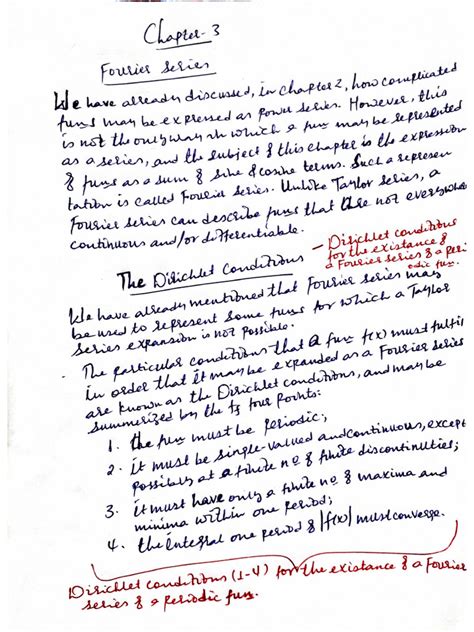 Chapter-3
Fourier Series
We have already discussed, in Chapter 2, how complicated
funs may be expressed as power series. However, this
is not the only way in which a fun may be represented
as a series, and the subject of this chapter is the expression
of funs as a sum of sine & cosine terms. Such a represen
tation is called Fourier series. Unlike Taylor series, a
Fourier series can describe funs that are not everywhere
continuous and/or differentiable.
The Dirichlet Conditions
- Dirichlet conditions
for the existance of
a Fourier series of a peri
odic fun.
We have already mentioned that Fourier series may
be used to represent some funs for which a Taylor
series expansion is not possible.
- The particular conditions that a fun f(x) must fulfil
in order that it may be expanded as a Fourier series
are known as the Dirichlet conditions, and may be
summerized by the four points:
1. the fun must be periodic;
2. it must be single-valued and continuous, except
possibly at a finite no of finite discontinuities;
3. it must have only a finite no of maxima and
minima within one period;
4. the integral one period of |f(x)| must converge.
Dirichlet conditions (1-4) for the existance of a Fourier
series of a periodic fun.